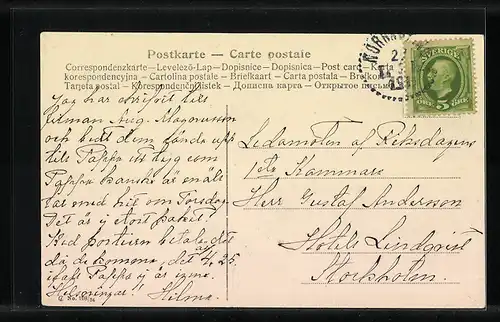 Postkarte — Carte postale
Correspondenzkarte — Levelező-Lap — Dopisnice — Dopisnica — Post card — Karta
korespondencyjna — Cartolina postale — Briefkaart — Carta postala — Brefkort
Tarjeta postal — Korespondenční lístek — Дописна карта — Открытое письмо
SVERIGE
5 ÖRE
Jag har skrifvit till
Aug. Magnusson
och bedt dem sända upp
till Pappa
Pappa kanske är snäll
med till om Torsdag.
Det är ej stort paket.
Bed portieren betala det
då de komma, det är 4,25.
ifall Pappa ej är inne.
Helsningar! Hilma.
Ledamoten af Riksdagens
Kammare
Herr Gustaf Andersson
Hotell Lindqvist
Stockholm.